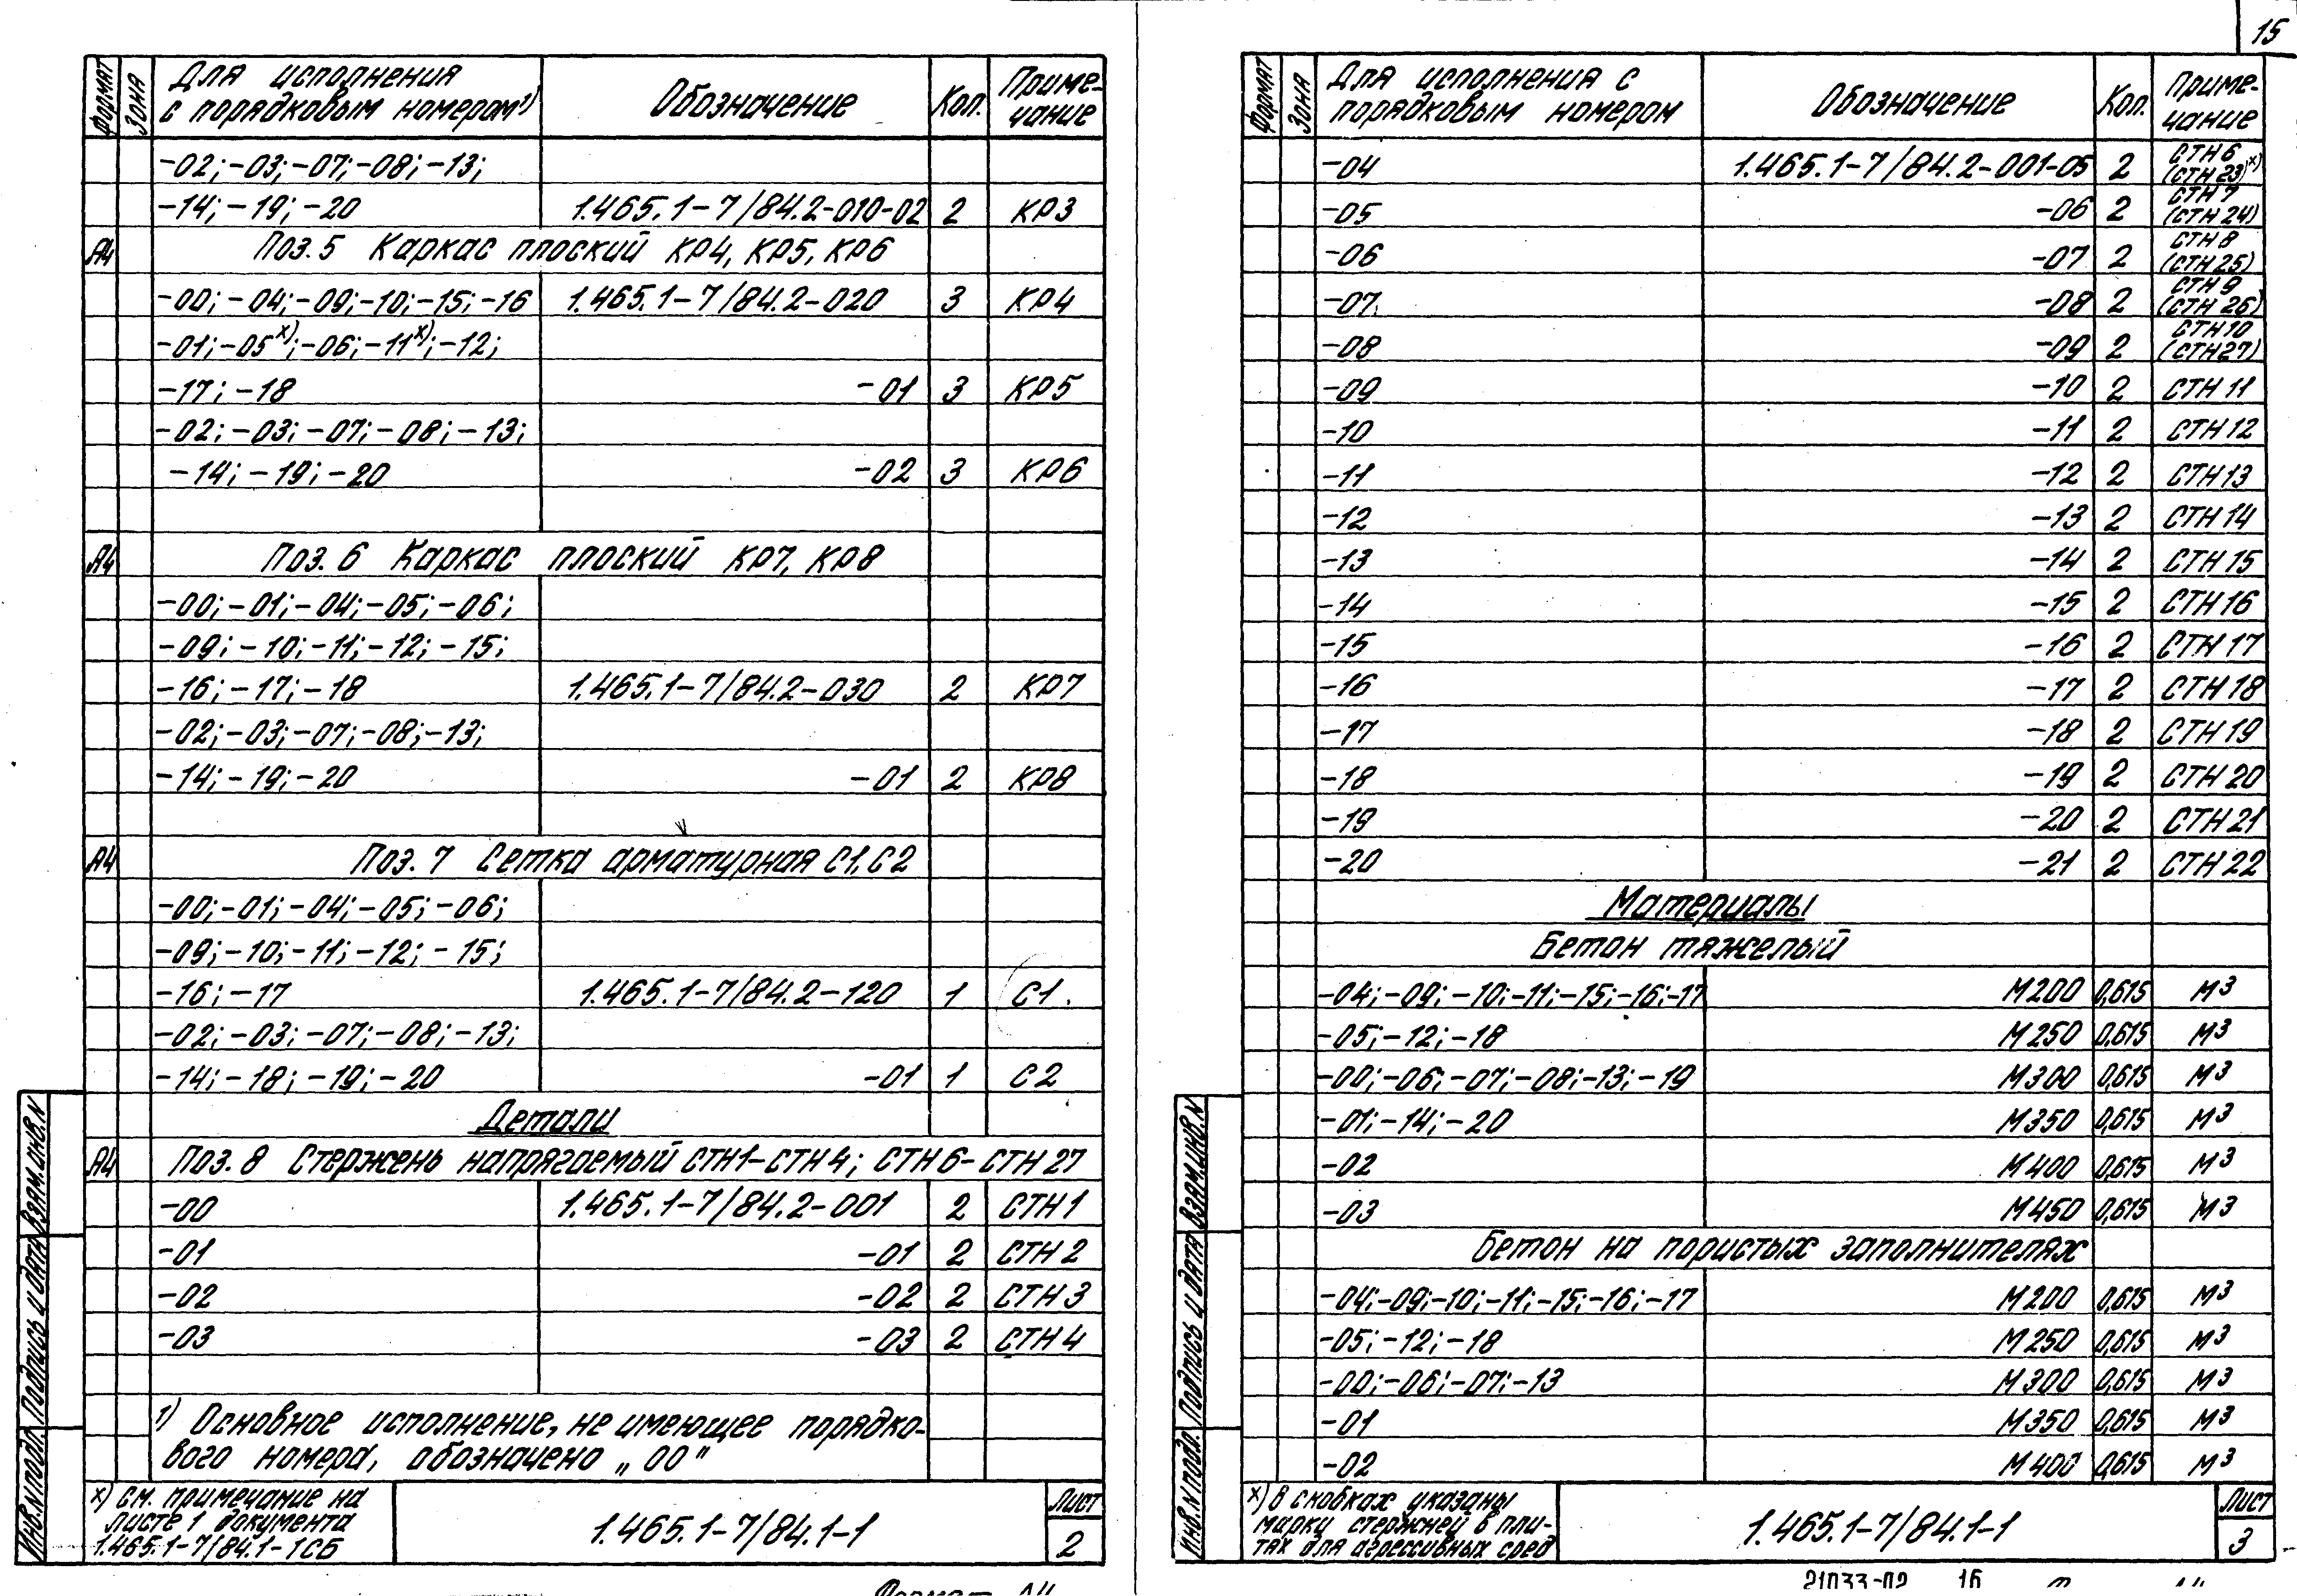 15
Формат Зона Для исполнения с порядковым номером¹⁾ Обозначение Кол. Приме-чание
-02; -03; -07; -08; -13;
-14; -19; -20 1.465.1-7/84.2-010-02 2 КР3
А4 Поз. 5 Каркас плоский КР4, КР5, КР6
-00; -04; -09; -10; -15; -16 1.465.1-7/84.2-020 3 КР4
-01; -05ˣ⁾; -06; -11ˣ⁾; -12;
-17; -18 -01 3 КР5
-02; -03; -07; -08; -13;
-14; -19; -20 -02 3 КР6
А4 Поз. 6 Каркас плоский КР7, КР8
-00; -01; -04; -05; -06;
-09; -10; -11; -12; -15;
-16; -17; -18 1.465.1-7/84.2-030 2 КР7
-02; -03; -07; -08; -13;
-14; -19; -20 -01 2 КР8
А4 Поз. 7 Сетка арматурная С1, С2
-00; -01; -04; -05; -06;
-09; -10; -11; -12; -15;
-16; -17 1.465.1-7/84.2-120 1 С1
-02; -03; -07; -08; -13;
-14; -18; -19; -20 -01 1 С2
Детали
А4 Поз. 8 Стержень напрягаемый СТН1-СТН4; СТН6-СТН27
-00 1.465.1-7/84.2-001 2 СТН1
-01 -01 2 СТН2
-02 -02 2 СТН3
-03 -03 2 СТН4
¹⁾ Основное исполнение, не имеющее порядко-
вого номера, обозначено „00"
х) См. примечание на
листе 1 документа
1.465.1-7/84.1-1СБ
1.465.1-7/84.1-1
Лист
2
Инв. N подл. Подпись и дата Взам. инв. N
Формат А4
Формат Зона Для исполнения с порядковым номером Обозначение Кол. Приме-чание
-04 1.465.1-7/84.2-001-05 2 СТН6 (СТН23)ˣ⁾
-05 -06 2 СТН7 (СТН24)
-06 -07 2 СТН8 (СТН25)
-07 -08 2 СТН9 (СТН26)
-08 -09 2 СТН10 (СТН27)
-09 -10 2 СТН11
-10 -11 2 СТН12
-11 -12 2 СТН13
-12 -13 2 СТН14
-13 -14 2 СТН15
-14 -15 2 СТН16
-15 -16 2 СТН17
-16 -17 2 СТН18
-17 -18 2 СТН19
-18 -19 2 СТН20
-19 -20 2 СТН21
-20 -21 2 СТН22
Материалы
Бетон тяжелый
-04; -09; -10; -11; -15; -16; -17 М200 0,615 м³
-05; -12; -18 М250 0,615 м³
-00; -06; -07; -08; -13; -19 М300 0,615 м³
-01; -14; -20 М350 0,615 м³
-02 М400 0,615 м³
-03 М450 0,615 м³
Бетон на пористых заполнителях
-04; -09; -10; -11; -15; -16; -17 М200 0,615 м³
-05; -12; -18 М250 0,615 м³
-00; -06; -07; -13 М300 0,615 м³
-01 М350 0,615 м³
-02 М400 0,615 м³
х) В скобках указаны
марки стержней в пли-
тах для агрессивных сред
1.465.1-7/84.1-1
Лист
3
Инв. N подл. Подпись и дата Взам. инв. N
21033-02 16